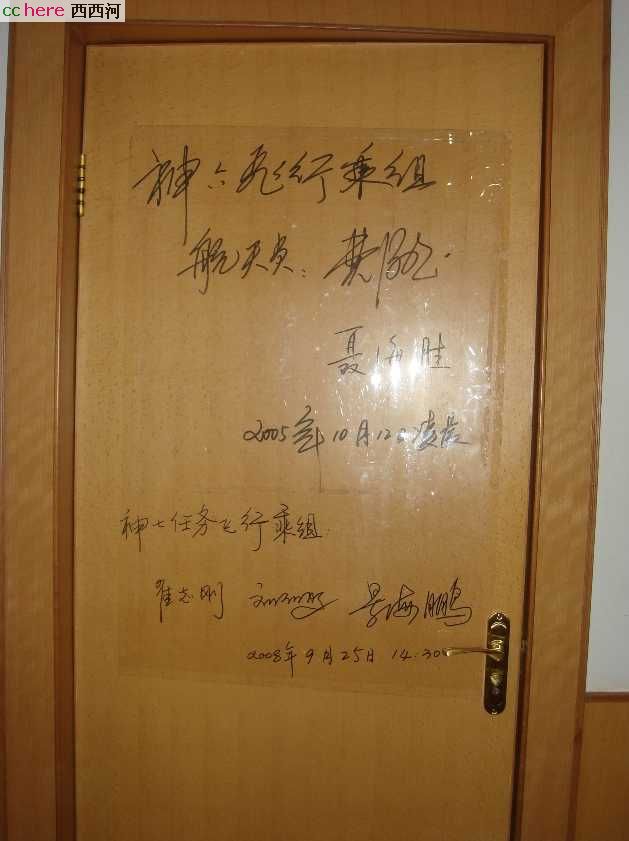 cchere 西西河
神六飞行乘组
航天员：费俊龙
聂海胜
2005年10月12日凌晨
神七任务飞行乘组
翟志刚 刘伯明 景海鹏
2008年9月25日 14:30